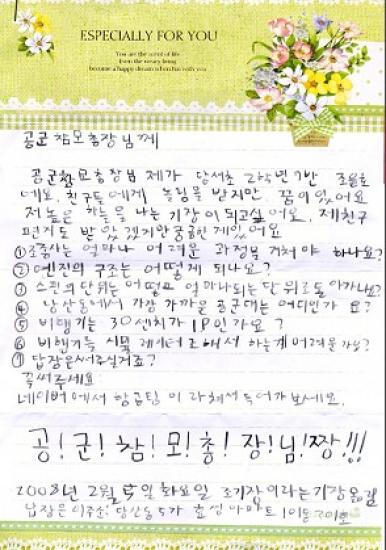 ESPECIALLY FOR YOU
You are the scent of life
become a happy dream when I'm with you
공군 참모총장님께
공군참모총장님 제가 당서초 2학년 7반
예요. 친구들에게 놀림을 받지만, 꿈이 있어요
저 높은 하늘을 나는 기장이 되고싶어요. 제친구
편지도 받았겠지만 궁금한게 있어요
① 조종사는 얼마나 어려운 과정을 거쳐야 하나요?
② 엔진의 구조는 어떻게 되나요?
③ 스핀의 단위는 어떻고 얼마나되는 단위로 돌아가나요?
④ 당산동에서 가장 가까운 공군대는 어디인가요?
⑤ 비행기는 30센치가 1P인가요?
⑥ 비행기는 시뮬레이터로해서 하는게 어려운가요?
⑦ 답장은써주실거죠?
꼭써주세요
네이버에서 항공팀이라쳐서 들어가보세요.
공!군!참!모!총!장!님!짱!!!
2008년 2월 5일 화요일 조기장이라는기장올림
답장은 당산동 5가 효성아파트